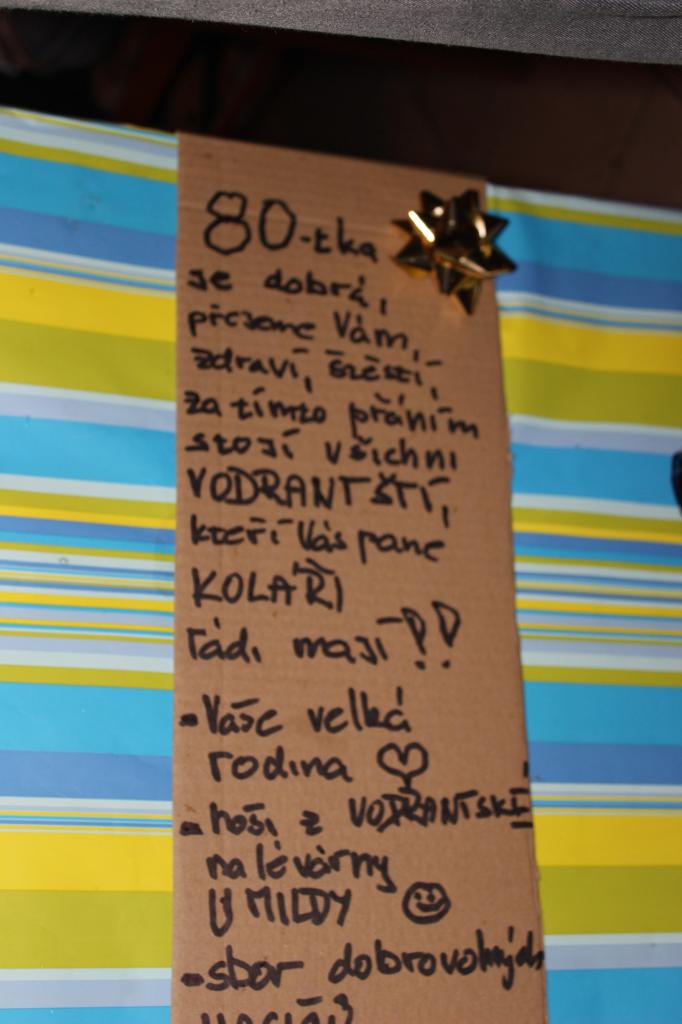 80-tka
se dobrá,
přejeme Vám,
zdraví, štěstí,
za tímto přáním
stojí všichni
VODRANTŠTÍ,
kteří Vás pane
KOLAŘI
rádi mají!!
- Vaše velká
rodina ♡
- hoši z VODRANTSKÉ
nalévárny
U MILDY ☺
- sbor dobrovolných